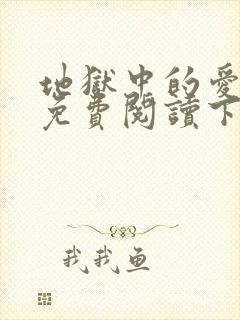 地獄中的愛
免費閱讀下
我我鱼